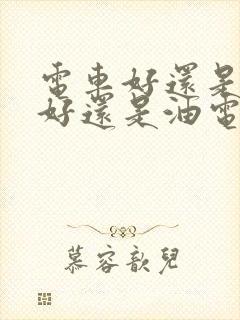 電車好還是
好還是油電
慕容歆兒